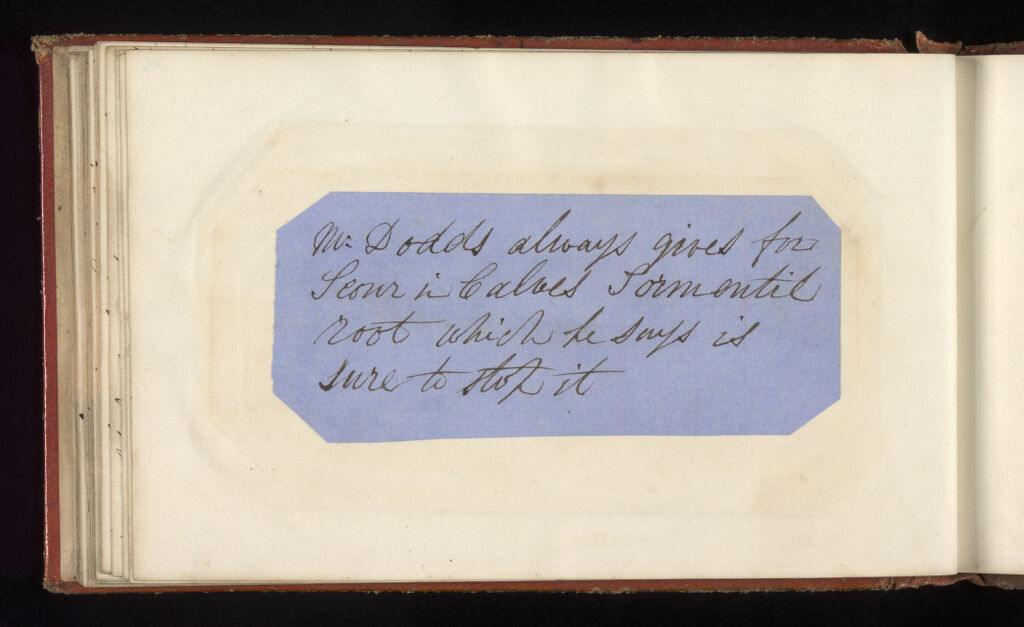 Mr: Dodds always gives for
Scour in Calves Tormentil
root which he says is
sure to stop it